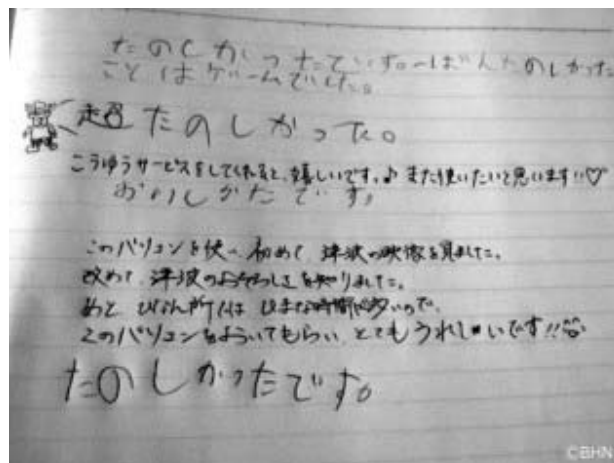 たのしかったでいす。いばんたのしかった
ことはゲームでした。
超たのしかった。
こうゆうサービスをしてくれると、嬉しいです♪また使いたいと思います!!♡
おのしかたです。
このパソコンを使い初めて、津波の映像を見ました。
改めて、津波のおそろしさを知りました。
あと ひなん所では ひまな時間が多いので、
このパソコンをようい てもらい、とてもうれしいです!!
たのしかったです。
©BHN